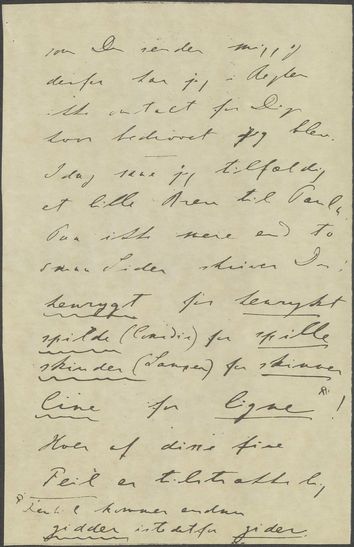 som Du sender mig, og
derfor har jeg i Regelen
ikke omtalt for Dig
hvor bedrøvet jeg blev.
Idag saae jeg tilfældig
et lille Brev til Paul.
Paa ikke mere end to
smaa Sider skriver Du:
henrygt for henrykt
spilde (Comedie) for spille
skinder (Lampen) for skinner
line for ligne !
Hver af disse fire
Feil er tilstrækkelig
Dertil kommer endnu
gidder istedetfor gider.